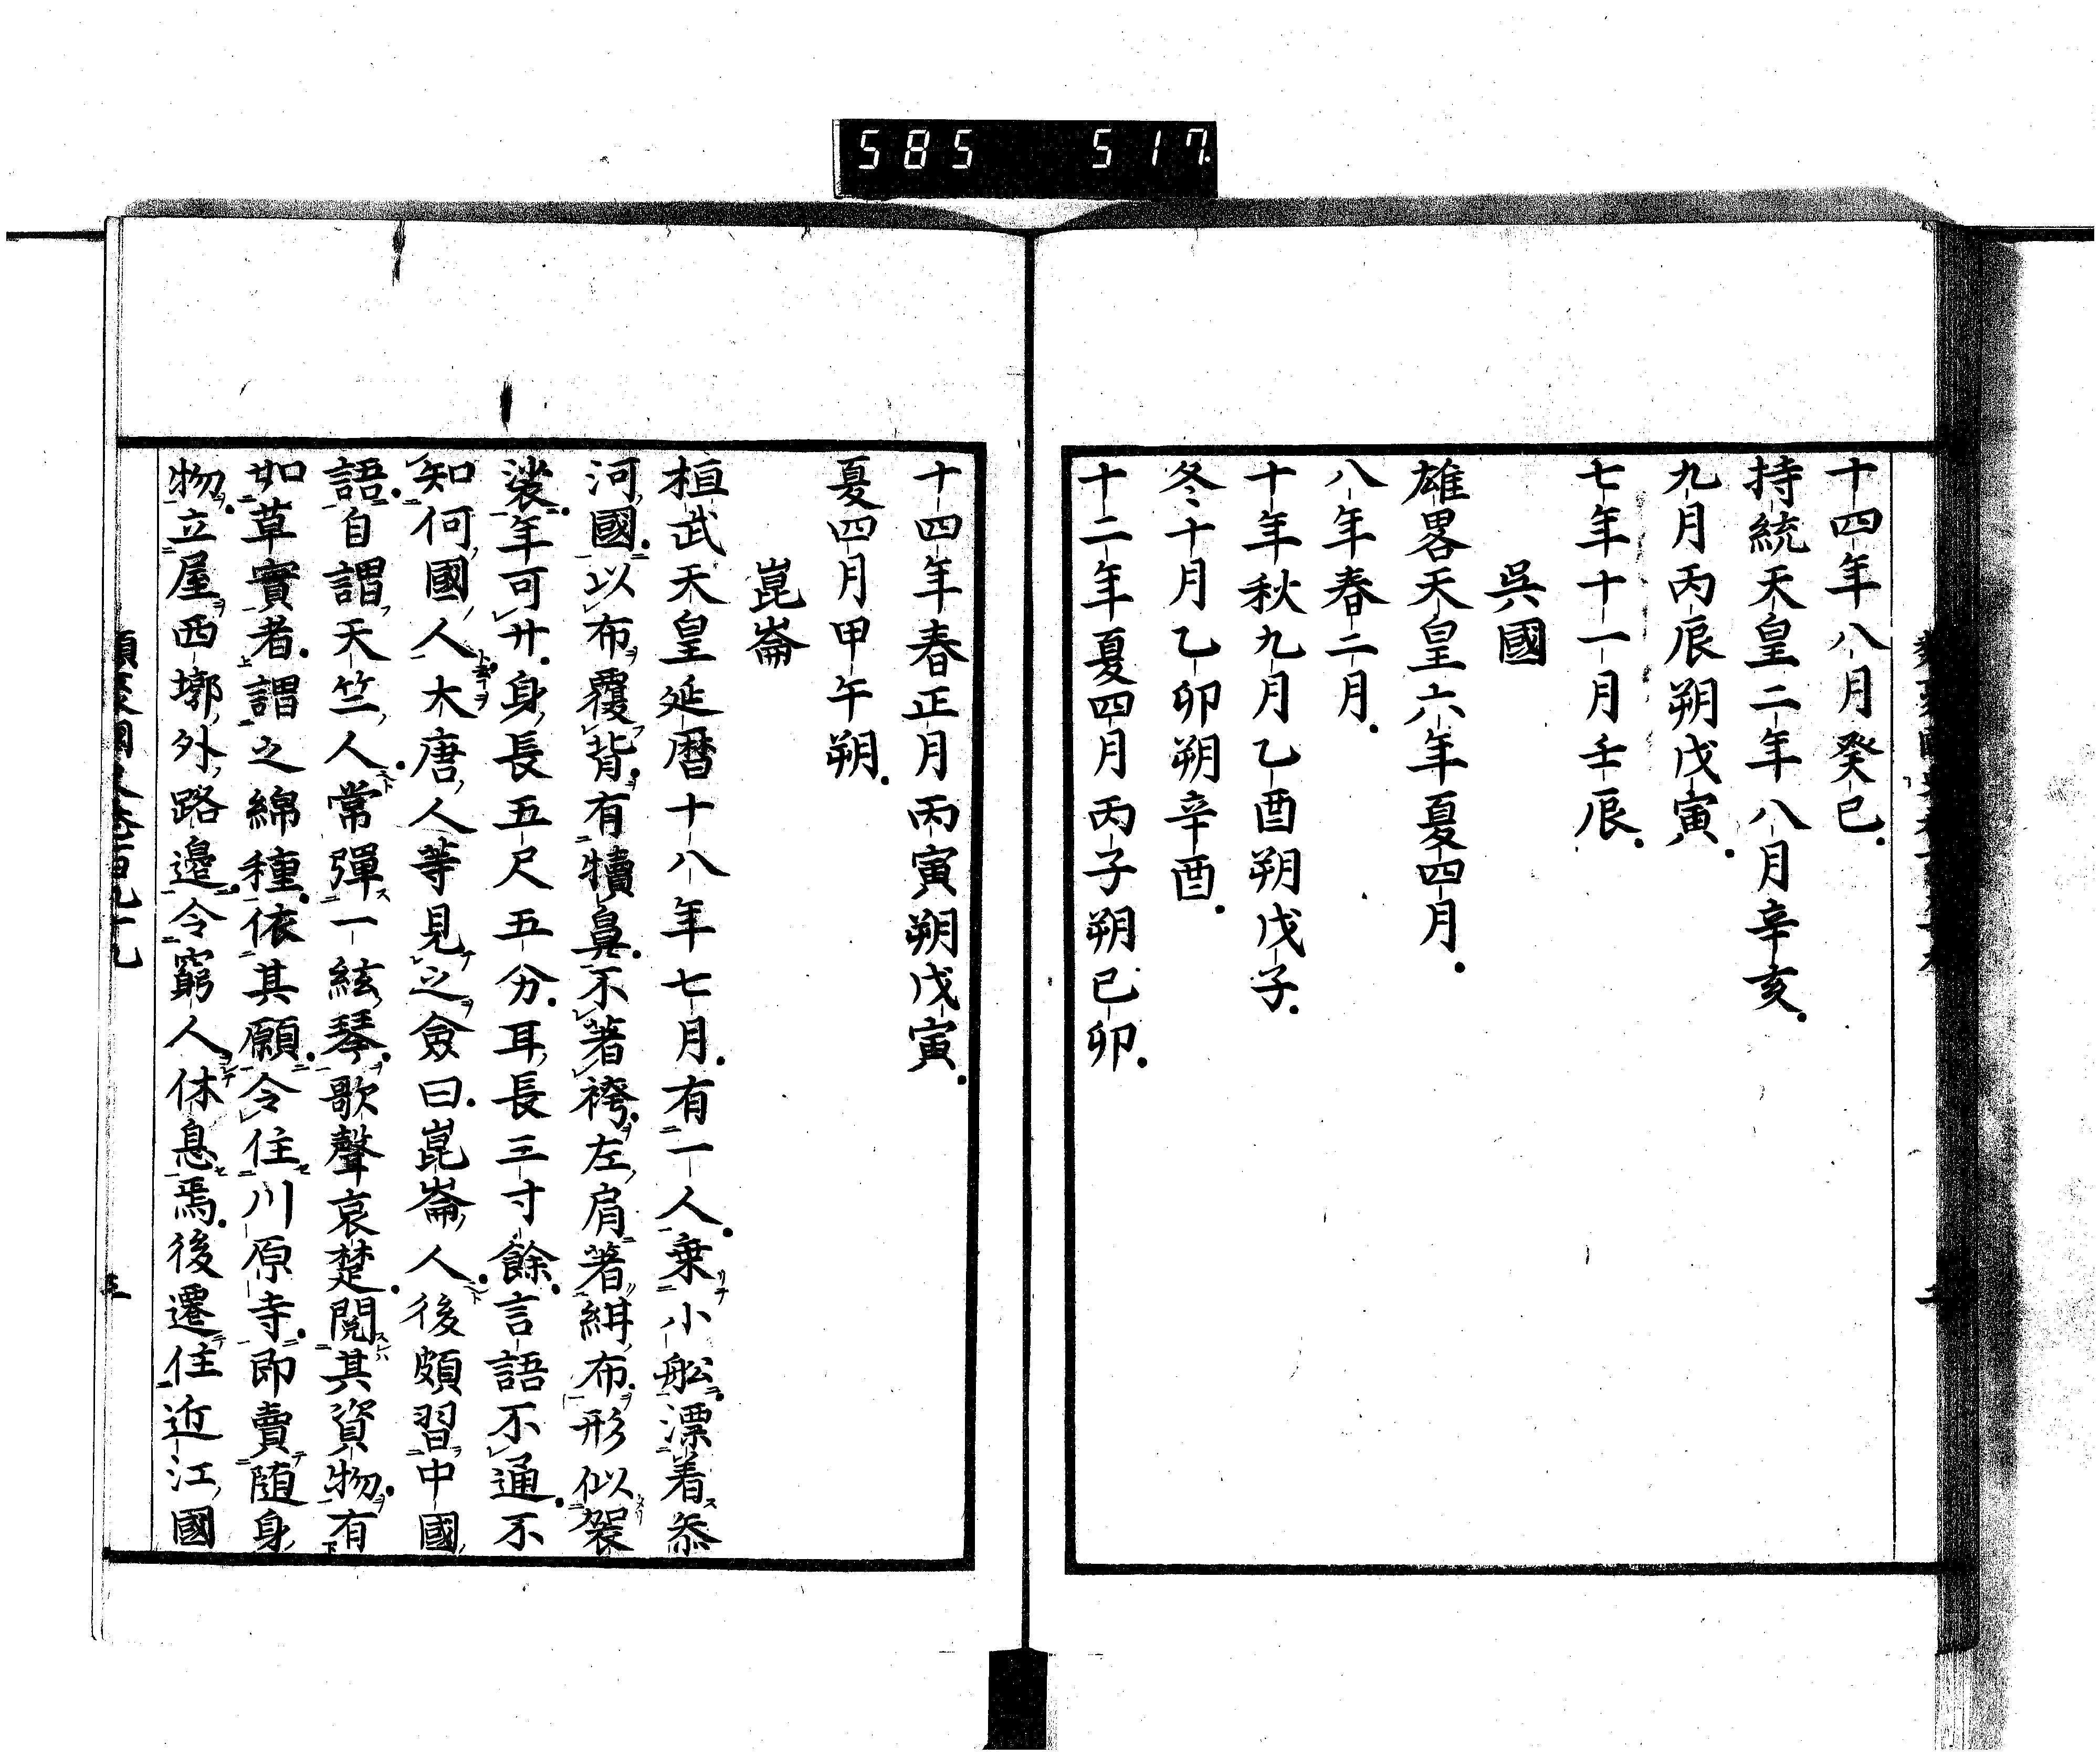 585 517
十四年八月癸巳.
持統天皇二年八月辛亥.
九月丙辰朔戊寅.
七年十一月壬辰.
吳國
雄畧天皇六年夏四月.
八年春二月.
十年秋九月乙酉朔戊子.
冬十月乙卯朔辛酉.
十二年夏四月丙子朔已卯.
十四年春正月丙寅朔戊寅.
夏四月甲午朔.
崑崙
桓武天皇延曆十八年七月.有一人.乗小舩.漂着叅
河國.以布覆背.有犢鼻.不著袴.左肩著紺布.形似袈
裟.年可廾.身長五尺五分.耳長三寸餘.言語不通.不
知何國人.大唐人等見之僉曰.崑崙人.後頗習中國
語.自謂天竺人.常彈一絃琴.歌聲哀楚.閱其資物.有
如草實者.謂之綿種.依其願.令住川原寺.即賣随身
物.立屋西墎外路邊.令窮人休息焉.後遷住近江國
三